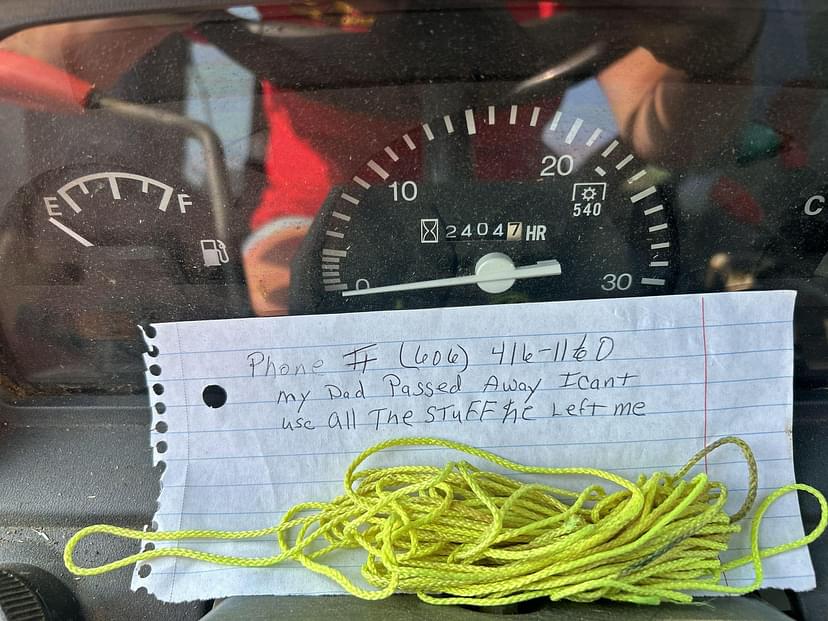 E F
10 20
540
24047 HR
0 30
C
Phone # (606) 416-1160
my Dad Passed Away I cant
use all The STuFF he Left me